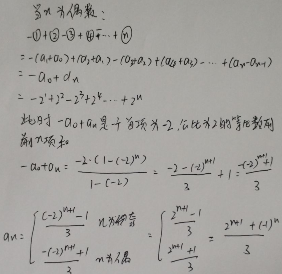 当n为偶数:
-①+②-③+④-…+ⓝ
=-(a₁+a₀)+(a₂+a₁)-(a₃+a₂)+(a₄+a₃)-…+(aₙ+aₙ₋₁)
=-a₀+aₙ
=-2¹+2²-2³+2⁴-…+2ⁿ
此时 -a₀+aₙ是 首项为-2,公比为2的等比数列
前n项和
-a₀+aₙ= \frac{-2·(1-(-2)ⁿ)}{1-(-2)} = \frac{-2-(-2)ⁿ⁺¹}{3} +1= \frac{-(-2)ⁿ⁺¹+1}{3}
aₙ= { \frac{(-2)ⁿ⁺¹-1}{3} n为奇 \frac{-(-2)ⁿ⁺¹+1}{3} n为偶 = { \frac{2ⁿ⁺¹-1}{3} \frac{2ⁿ⁺¹+1}{3} = \frac{2ⁿ⁺¹+(-1)ⁿ}{3}